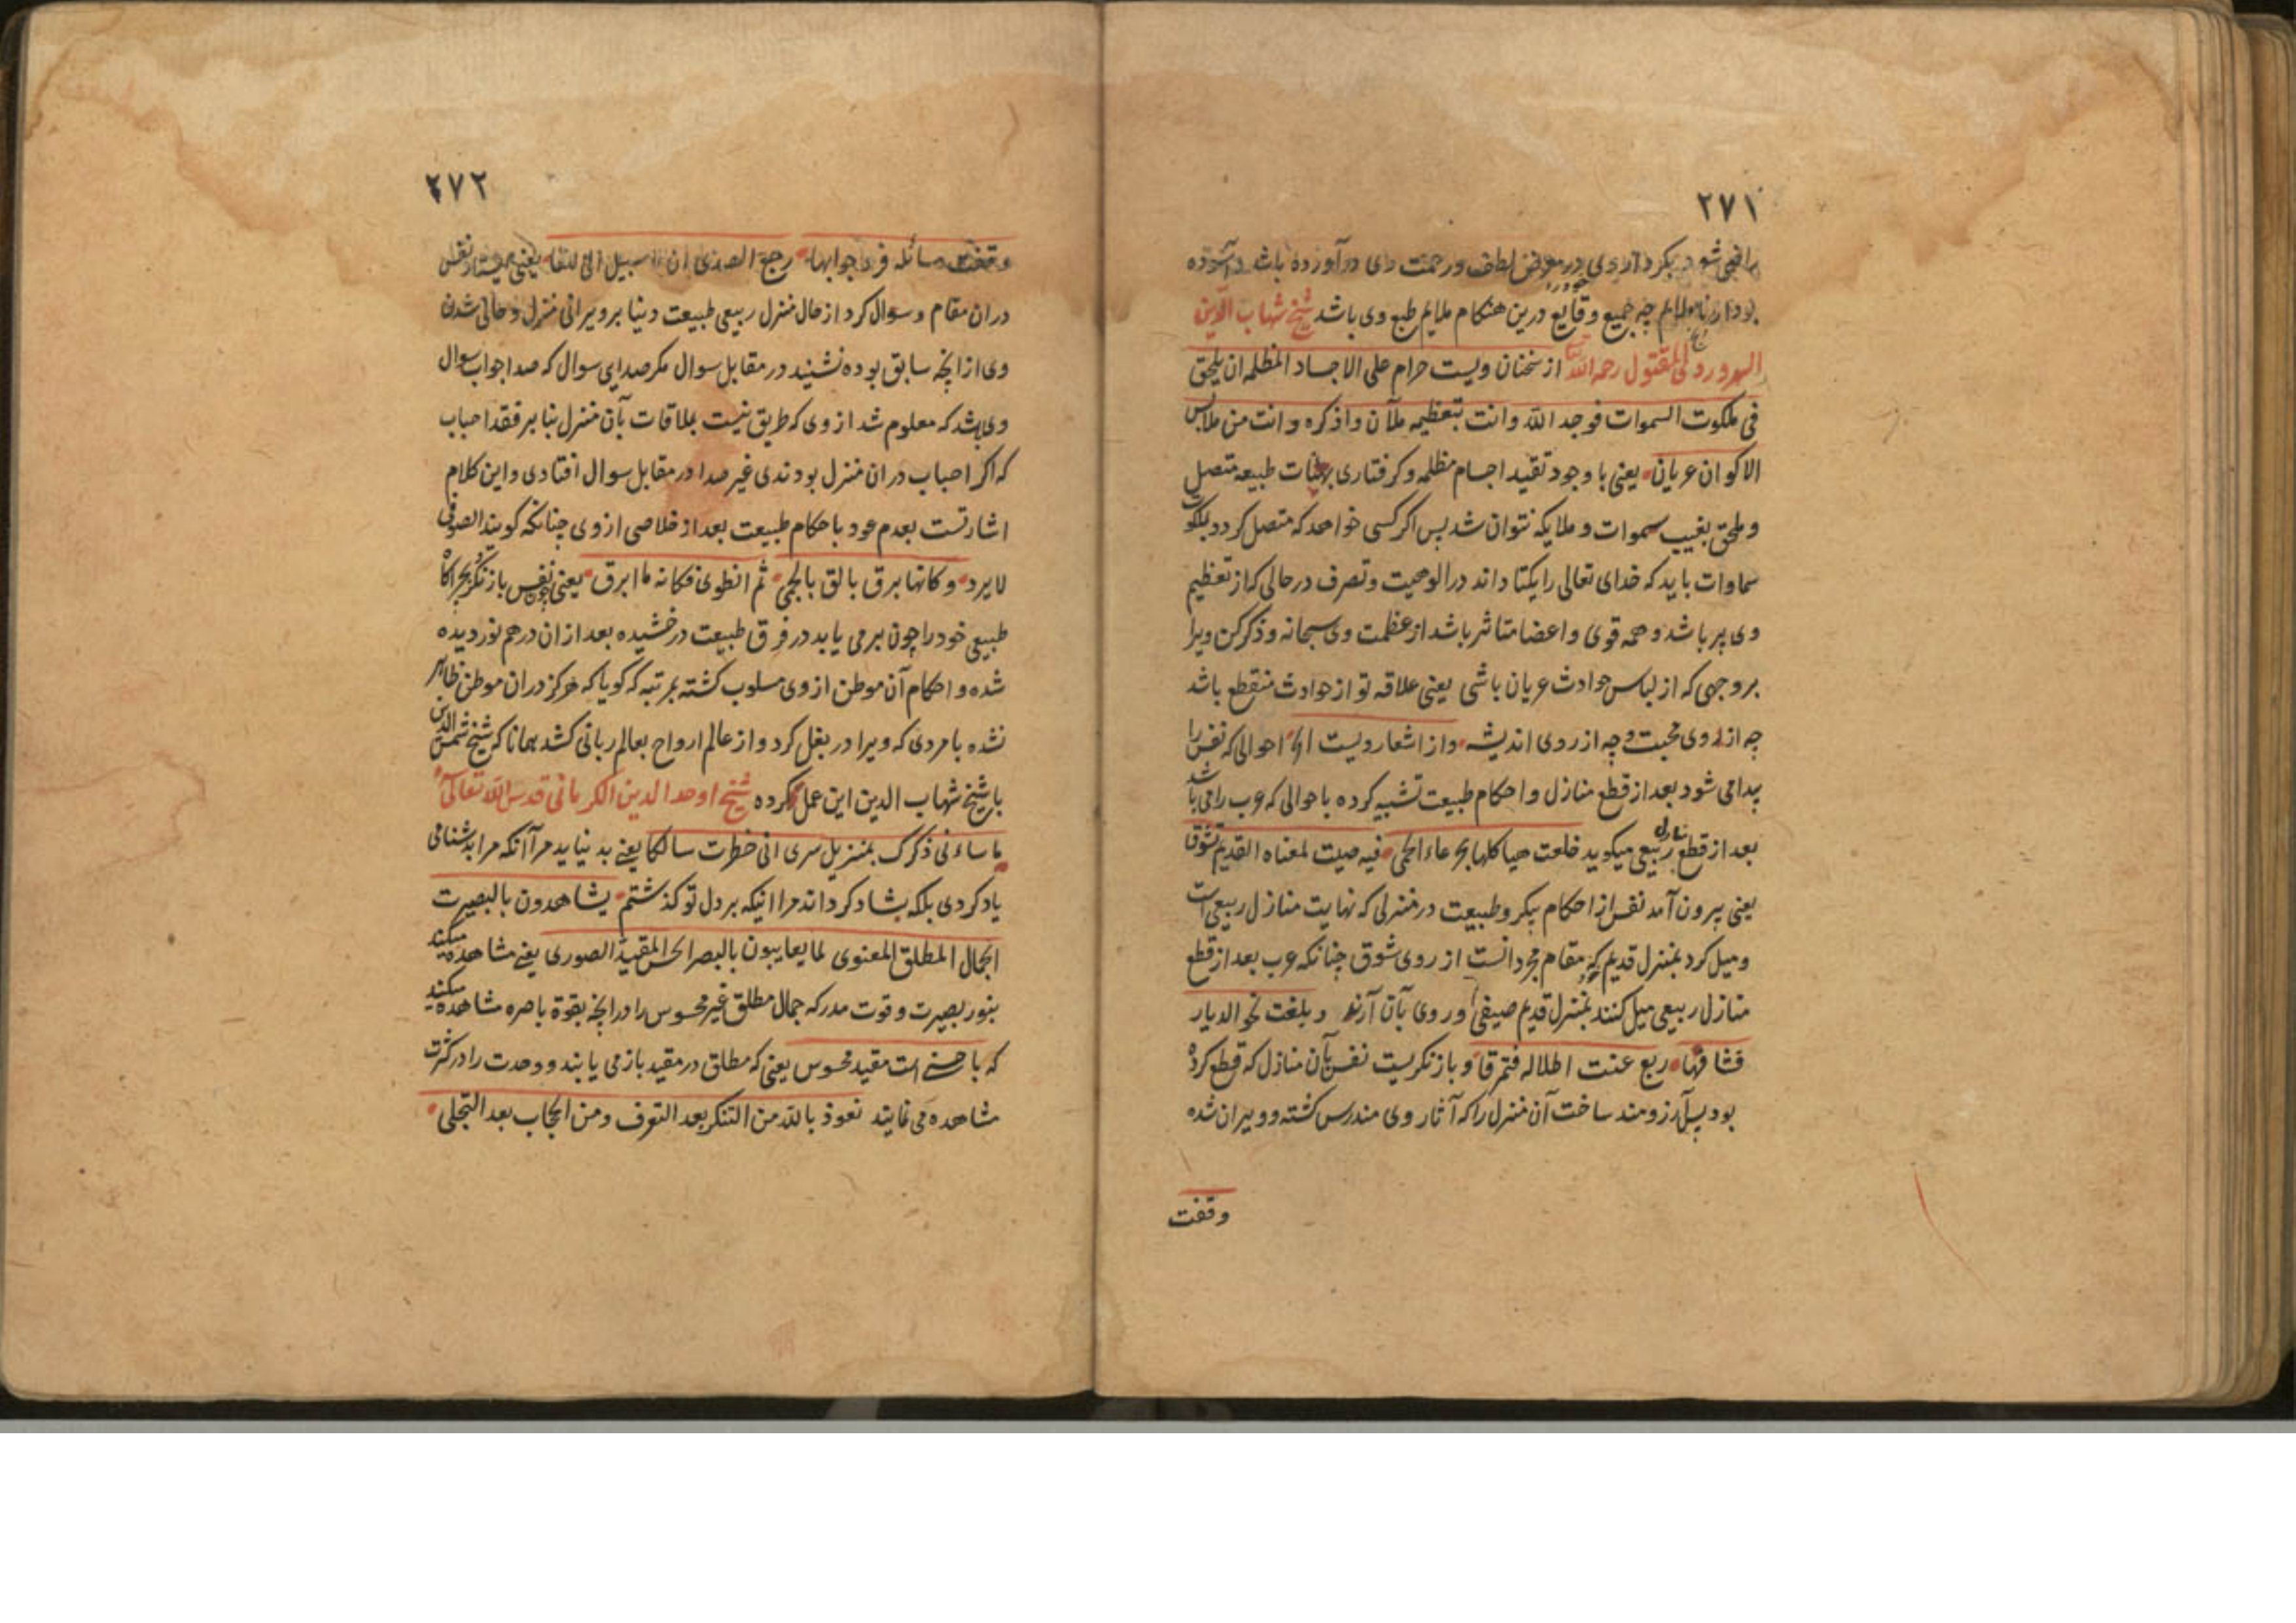 ۲۷۱
راضی شود بکردار وی در معرض لطف ورحمت وی در آورده باشد وآسوده
بود از ناملایم چه جمیع وقایع درین هنکام ملایم طبع وی باشد شیخ شهاب الدین
السهروردی المقتول رحمه الله از سخنان ویست حرام علی الاجساد المظلمه ان یلحق
فی ملکوت السموات فوجد الله وانت بتعظیمه ملآن واذکره وانت من ملابس
الاکوان عریان یعنی با وجود تقید اجسام مظلمه وکرفتاری بهیئات طبیعه متصل
وملحق بغیب سموات وملایکه نتوان شد پس اکر کسی خواهد که متصل کردد بملکوت
سماوات باید که خدای تعالی را یکتا داند در الوهیت وتصرف در حالی که از تعظیم
وی پر باشد وهمه قوی واعضا متاثر باشد از عظمت وی سبحانه وذکر کن ویرا
بر وجهی که از لباس حوادث عریان باشی یعنی علاقه تو از حوادث منقطع باشد
چه از روی محبت وچه از روی اندیشه واز اشعار ویست احوالی که نفس را
پیدا می شود بعد از قطع منازل واحکام طبیعت تشبیه کرده باحوالی که عرب را می باشد
بعد از قطع منازل ربیعی میکوید خلعت هیاکلها بجرعاء الحمی فیه صبت لمغناه القدیم تشوقا
یعنی بیرون آمد نفس از احکام پیکر وطبیعت در منزلی که نهایت منازل ربیعی است
ومیل کرد بمنزل قدیم که مقام مجردانست از روی شوق چنانکه عرب بعد از قطع
منازل ربیعی میل کنند بمنزل قدیم صیفی وروی بآن آرند وبلغت نحو الدیار
فشاقها ربع عنت اطلاله فتمرقا وباز نکریست نفس بآن منازل که قطع کرده
بود پس آرزومند ساخت آن منزل را که آثار وی مندرس کشته وویران شده
وقفت
۲۷۲
وقفت مسائله فرد جوابها رجع الصدی ان لا سبیل الی اللقا یعنی نفس
دران مقام وسوال کرد از حال منزل ربیعی طبیعت دنیا بر ویرانی منزل وخالی شدن
وی از آنچه سابق بوده نشنید در مقابل سوال مکر صدای سوال که صدا جواب سوال
وی شد که معلوم شد از وی که طریق نیست بملاقات بآن منزل بنا بر فقد احباب
که اکر احباب دران منزل بودندی غیر صدا در مقابل سوال افتادی واین کلام
اشارتست بعدم عود باحکام طبیعت بعد از خلاصی از وی چنانکه کویند الصوفی
لا یرد وکانها برق تالق بالحمی ثم انطوی فکانه ما ابرق یعنی چون نفس باز نکرد
طبیعی خود را چون برمی یابد در فرق طبیعت درخشیده بعد از ان درهم نوردیده
شده واحکام آن موطن از وی مسلوب کشته بمرتبه که کویا که هرکز دران موطن ظاهر
نشده با مردی که ویرا در بغل کرد واز عالم ارواح بعالم ربانی کشد همانا که شیخ شمس الدین
با شیخ شهاب الدین این عمل کرده شیخ اوحد الدین الکرمانی قدس الله تعالی
ما ساءنی ذکرک بمنزیل سری انی خطرت سالکا یعنی بد نیاید مرا آنکه مرا بدشنامی
یاد کردی بلکه شاد کرداند مرا اینکه بر دل تو کذشتم یشاهدون بالبصیرت
الجمال المطلق المعنوی لما یعاینون بالبصر الحس المقید الصوری یعنی مشاهده میکنند
بنور بصیرت وقوت مدرکه جمال مطلق غیر محسوس را در آنچه بقوة باصره مشاهده میکنند
که با حسنی است مقید محسوس یعنی که مطلق در مقید باز می یابند ووحدت را در کثرت
مشاهده می نمایند نعوذ بالله من التنکر بعد التعرف ومن الحجاب بعد التجلی